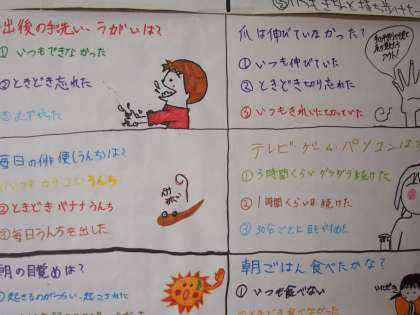 出後の手洗い、うがいは?
① いつもできなかった
② ときどき忘れた
③ 必ずやった
爪は伸びていなかった?
① いつも伸びていた
② ときどき切り忘れた
③ いつもきれいに切っていた
毎日の排便(うんち)は?
① いつもカチコチうんち
② ときどきバナナうんち
③ 毎日うんちを出した
テレビ・ゲーム・パソコンは?
① 3時間くらいダラダラ続けた
② 1時間くらいは続けた
③ 30分ごとに目をやすめた
朝の目覚めは?
① 起きるのがつらい、起こされた
朝ごはん食べたかな?
① いつも食べない
② ときどき食べなかった
いただき